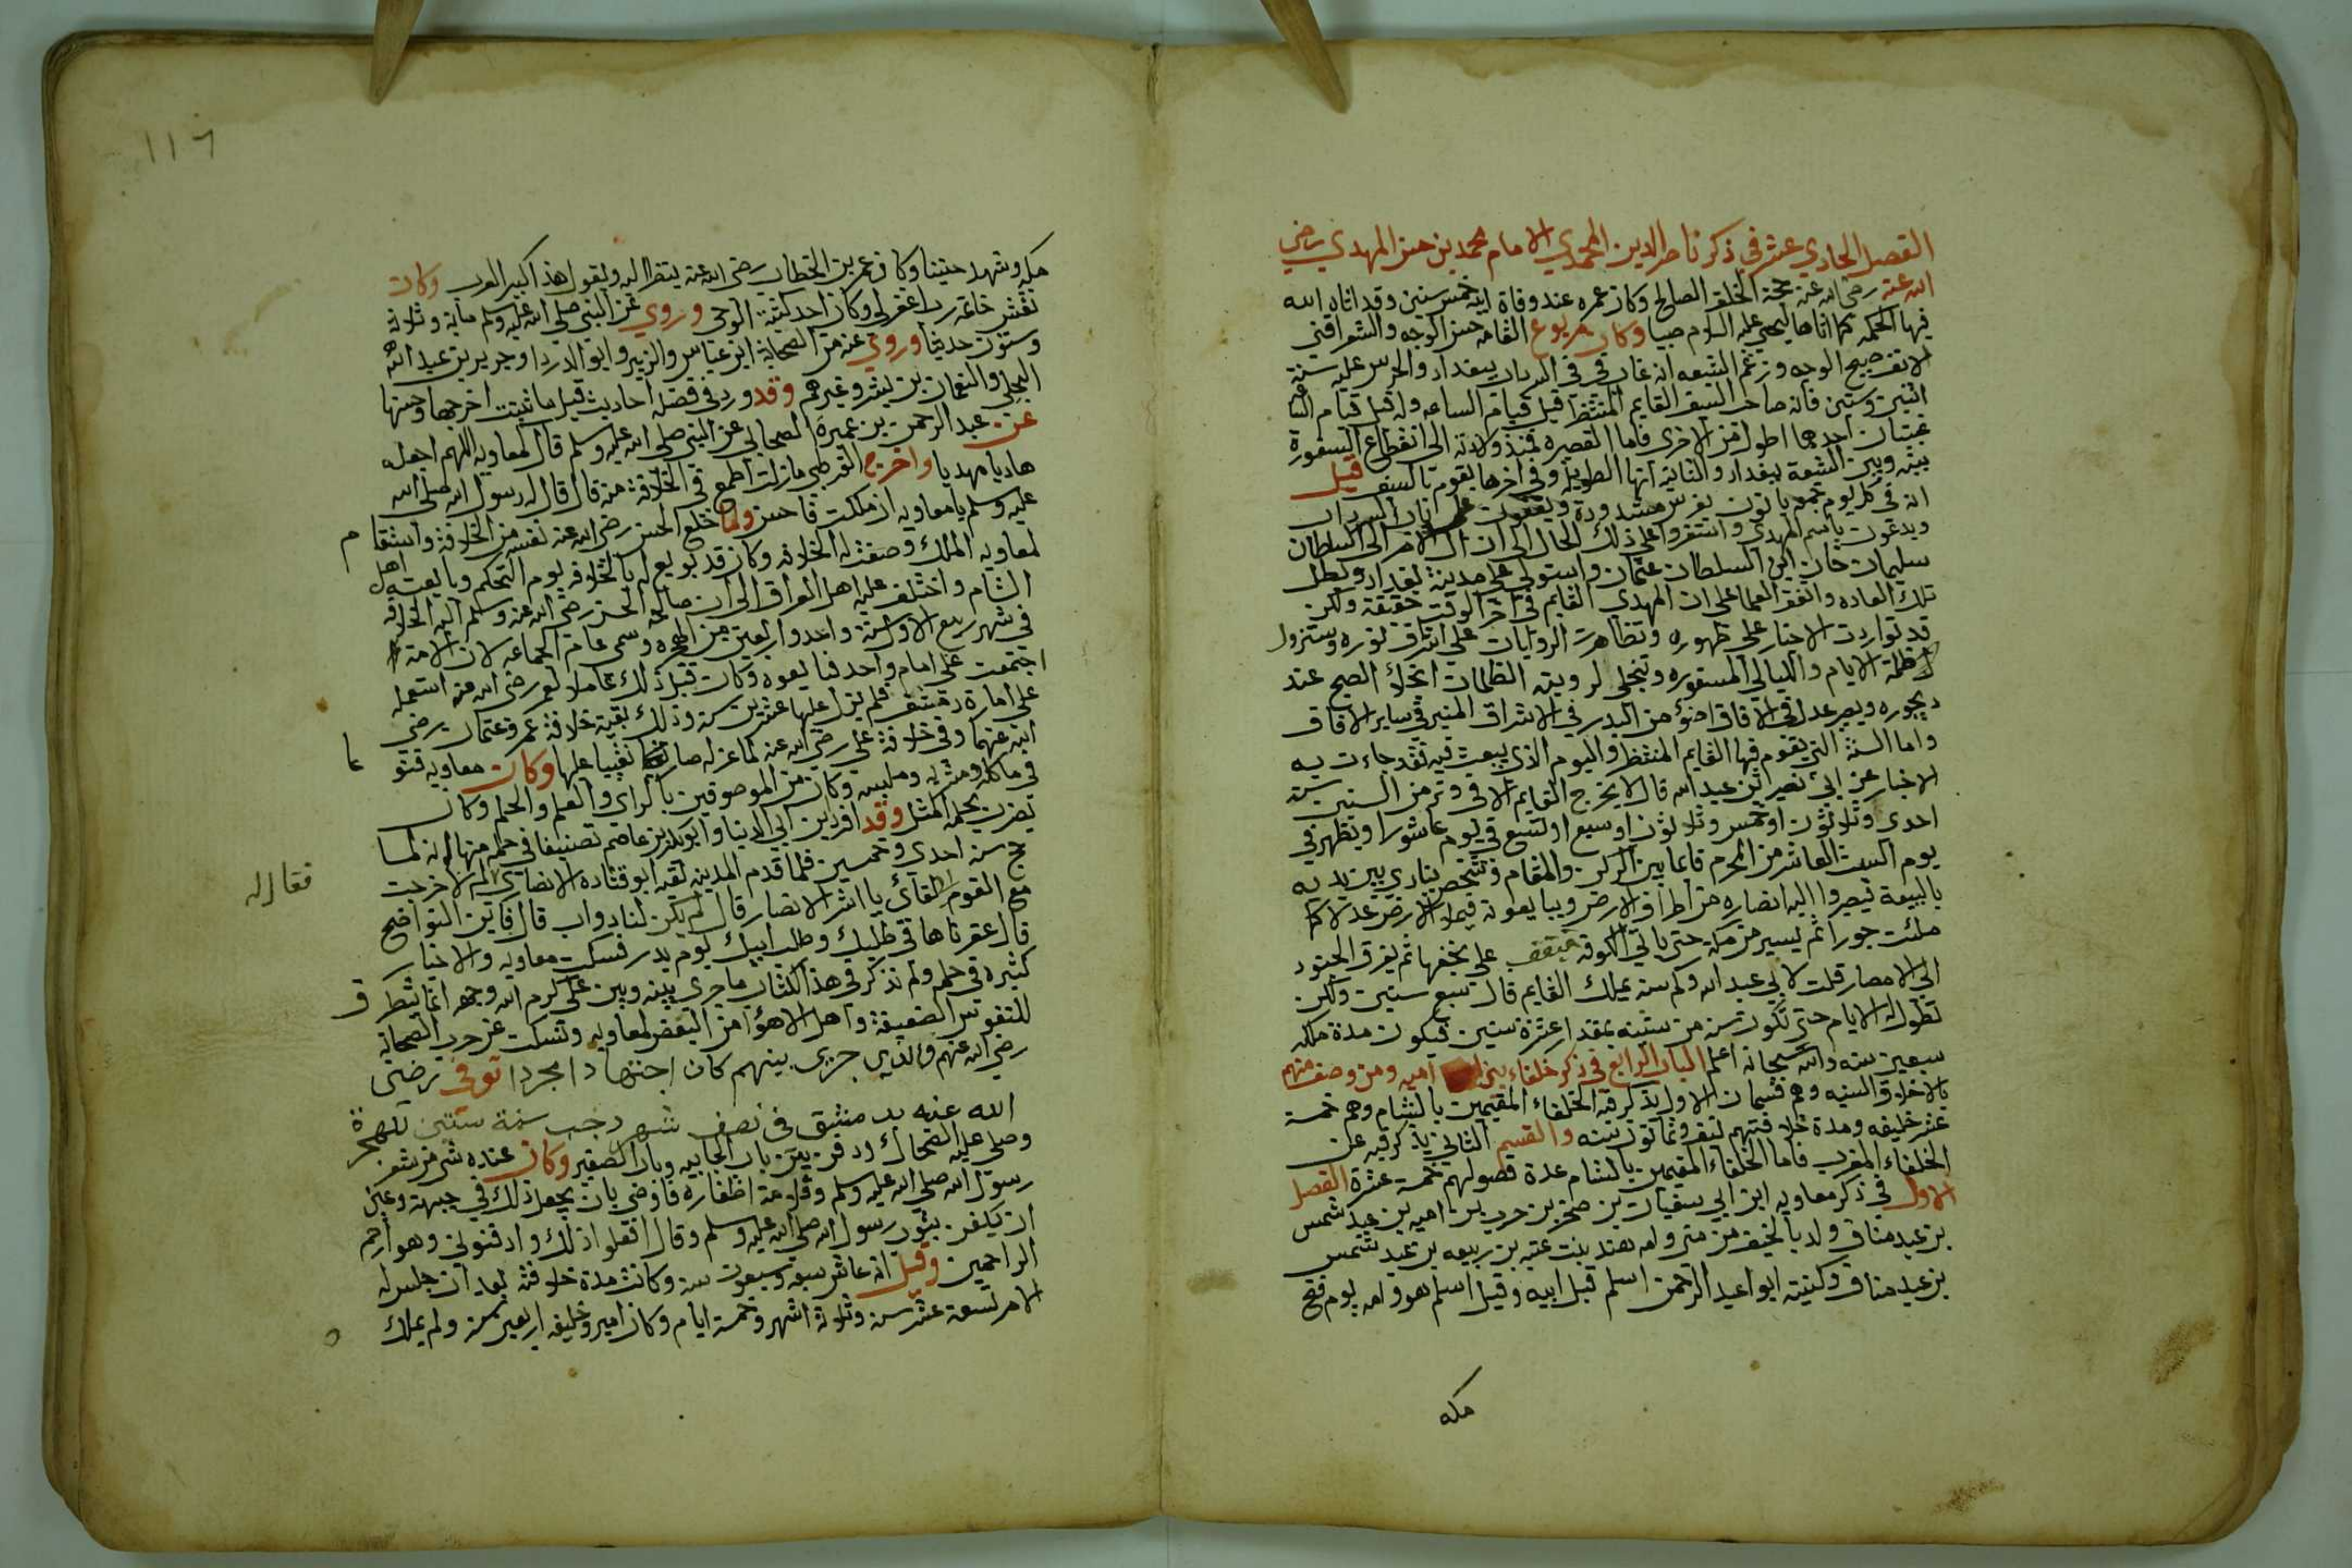 الفصل الحادي عشر في ذكر ناصر الدين المحمدي الامام محمد بن حسن المهدي رضي
الله عنه رضي الله عنه حجة الخلف الصالح وكان عمره عند وفاة ابيه خمس سنين وقد اتاه الله
فيها الحكمة كما اتاها ليحيي عليه السلام صبيا وكان مربوع القامه حسن الوجه والشعر اقني
الانف صبيح الوجه وزعم الشيعه انه غاب في في السرداب ببغداد والحرس عليه سنة
اثنين وستين فانه صاحب السيف القايم المنتظر قبل قيام الساعه وله قبل قيام
غيبتان احدهما اطول من الاخرى فاما القصيره فمنذ ولادته الى انقطاع السفورة
بينه وبين الشيعة ببغداد والثانيه انها الطويله وفي اخرها يقوم بالسف قيل
انه في كل يوم جمعه ياتون بفرس مشدودة ويقفون على باب السرداب
ويدعون باسم المهدي واستقروا على ذلك الحال الى ان ال الامر الى السلطان
سليمان خان ابن السلطان عثمان واستولى على مدينة بغداد وبطل
تلك العاده واتفق العلما على ان المهدي القايم في اخر الوقت حقيقة ولكن
قد تواردت الاخبار على ظهوره وتظاهرت الروايات على اشراق نوره وستزول
ظلمة الايام والليالي المسفوره وتنجلي لرويته الظلمات انجلاء الصبح عند
ديجوره ويسير عدله في الافاق اضؤ من البدر في الاشراق المنير في ساير الافاق
واما السنة التي يقوم فيها القايم المنتظر واليوم الذي يبعث فيه فقد جاءت به
الاخبار عن ابي نصير ابن عبد الله قال لا يخرج القايم الا في وتر من السنين سنة
احدى وثلاثون او خمس وثلاثون او سبع او تسع في يوم عاشورا ويظهر في
يوم السبت العاشر من المحرم قايما بين الركن والمقام وشخص ينادي بين يديه
بالبيعة فيصيروا اليه انصاره من اطراف الارض ويبايعونه فيملا الارض عدلا كما
ملئت جورا ثم يسير من مكة حتى ياتي الكوفه فيقف على نجفها ثم يفرق الجنود
الى الامصار قلت لابي عبد الله وكم سنه يملك القايم قال سبع سنين ولكن
تطول له الايام حتى تكون سنه من سنينه بمقدار عشرة سنين فيكون مدة ملكه
سبعين سنه والله سبحانه اعلم الباب الرابع في ذكر خلفاء بني اميه ومن وصف منهم
بالاخلاق السنيه وهم قسمان الاول يذكر فيه الخلفاء المقيمين بالشام وهم خمسة
عشر خليفه ومدة خلافتهم نيف وثمانون سنه والقسم الثاني يذكر فيه عن
الخلفاء المغرب فاما الخلفاء المقيمين بالشام عدة فصولهم خمسة عشرة الفصل
الاول في ذكر معاويه ابن ابي سفيان بن صخر بن حرب بن اميه بن عبد شمس
بن عبد مناف ولد بالخيف من منى وامه هند بنت عتبه بن ربيعه بن عبد شمس
بن عبد مناف وكنيته ابوا عبد الرحمن اسلم قبل ابيه وقيل اسلم هو وامه يوم فتح
مكه
١١٦
مكه وشهد حنينا وكان عمر بن الخطاب رضي الله عنه ينظر اليه ويقول هذا كبير العرب وكان
نقش خاتمه رب اغفر لي وكان احد كتبة الوحي وروي عن النبي صلى الله عليه وسلم ماية وثلاثة
وستون حديثا وروي عنه من الصحابة ابن عباس والزبير وابو الدردا وجرير بن عبد الله
البجلي والنعمان بن بشر وغيرهم وقد ورد في فضله احاديث قيل ما ثبتت اخرجها وحسنها
عن عبد الرحمن بن عميره الصحابي عن النبي صلى الله عليه وسلم قال لمعاويه اللهم اجعله
هاديا مهديا واخرج القرطبي مازلت اطمع في الخلافة منه قال قال له رسول الله صلى الله
عليه وسلم يا معاويه ان ملكت فاحسن ولما خلع الحسن رضي الله عنه نفسه من الخلافة واستقام
لمعاويه الملك وصفت له الخلافه وكان قد بويع له بالخلافه يوم التحكم وبايعته اهل
الشام واختلف عليه اهل العراق الى ان صالحه الحسن رضي الله عنه وسلم اليه الخلافه
في شهر ربيع الاول سنة واحد واربعين من الهجره وسمي عام الجماعه لان الامة
اجتمعت على امام واحد فبايعوه وكان قبل ذلك عاملا لعمر رضي الله عنه استعمله
على امارة دمشق فلم يزل عليها عشرين سنه وذلك بقية خلافة عمر وعثمان رضي
الله عنهما وفي خلافة علي رضي الله عنه لما عزله صار نقيبا عليها وكان معاويه فتو
ما
في ماكله ومشربه وملبسه وكان من الموصوفين بالراي والعلم والحلم وكان
يضرب بحلمه المثل وقد افرد بن ابي الدنيا وابو بكر بن عاصم تصنيفا في حلمه منها انه لما
حج سنه احدى وخمسين فلما قدم المدينه لقيه ابو قتاده الانصاري لم لا خرجت
فقال له
مع القوم للقائي يا اشر الانصار قال لم يكن لنا دواب قال فاين النواضح
قال عقرناها في طلبك وطلب ابيك يوم بدر فسكت معاويه والاخبار
كثيره في حلمه ولم نذكر في هذا الكتاب ما جرى بينه وبين علي كرم الله وجهه انما يتطرق
للنفوس الضعيفة واهل الاهوا من البغض لمعاويه ونسكت عن حرب الصحابة
رضي الله عنهم والذي جرى بينهم كان اجتهادا مجردا توفى رضى
الله عنه بدمشق فى نصف شهر رجب سنة ستين للهجرة
وصلى عليه الضحاك ودفن بين باب الجابيه وباب الصغير وكان عنده شي من شعر
رسول الله صلى الله عليه وسلم وقلامة اظفاره فاوصي بان يجعل ذلك في جبهته وعين
ان يكفن بثوب رسول الله صلى الله عليه وسلم وقال افعلوا ذلك وادفنوني وهو ارحم
الراحمين وقيل انه عاش سبعه وسبعون سنه وكانت مدة خلافته بعد ان جلس له
الامر تسعة عشر سنه وثلاثة اشهر وخمسة ايام وكان امير وخليفه اربعين سنه ولم يملك